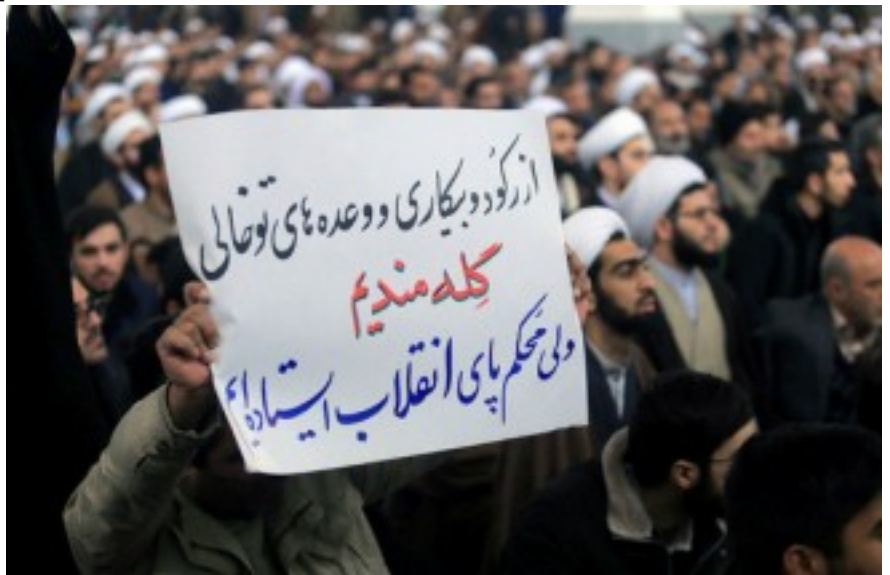 از رکُود و بیکاری و وعده های توخالی
گِله مندیم
ولی محکم پای انقلاب ایستاده ایم